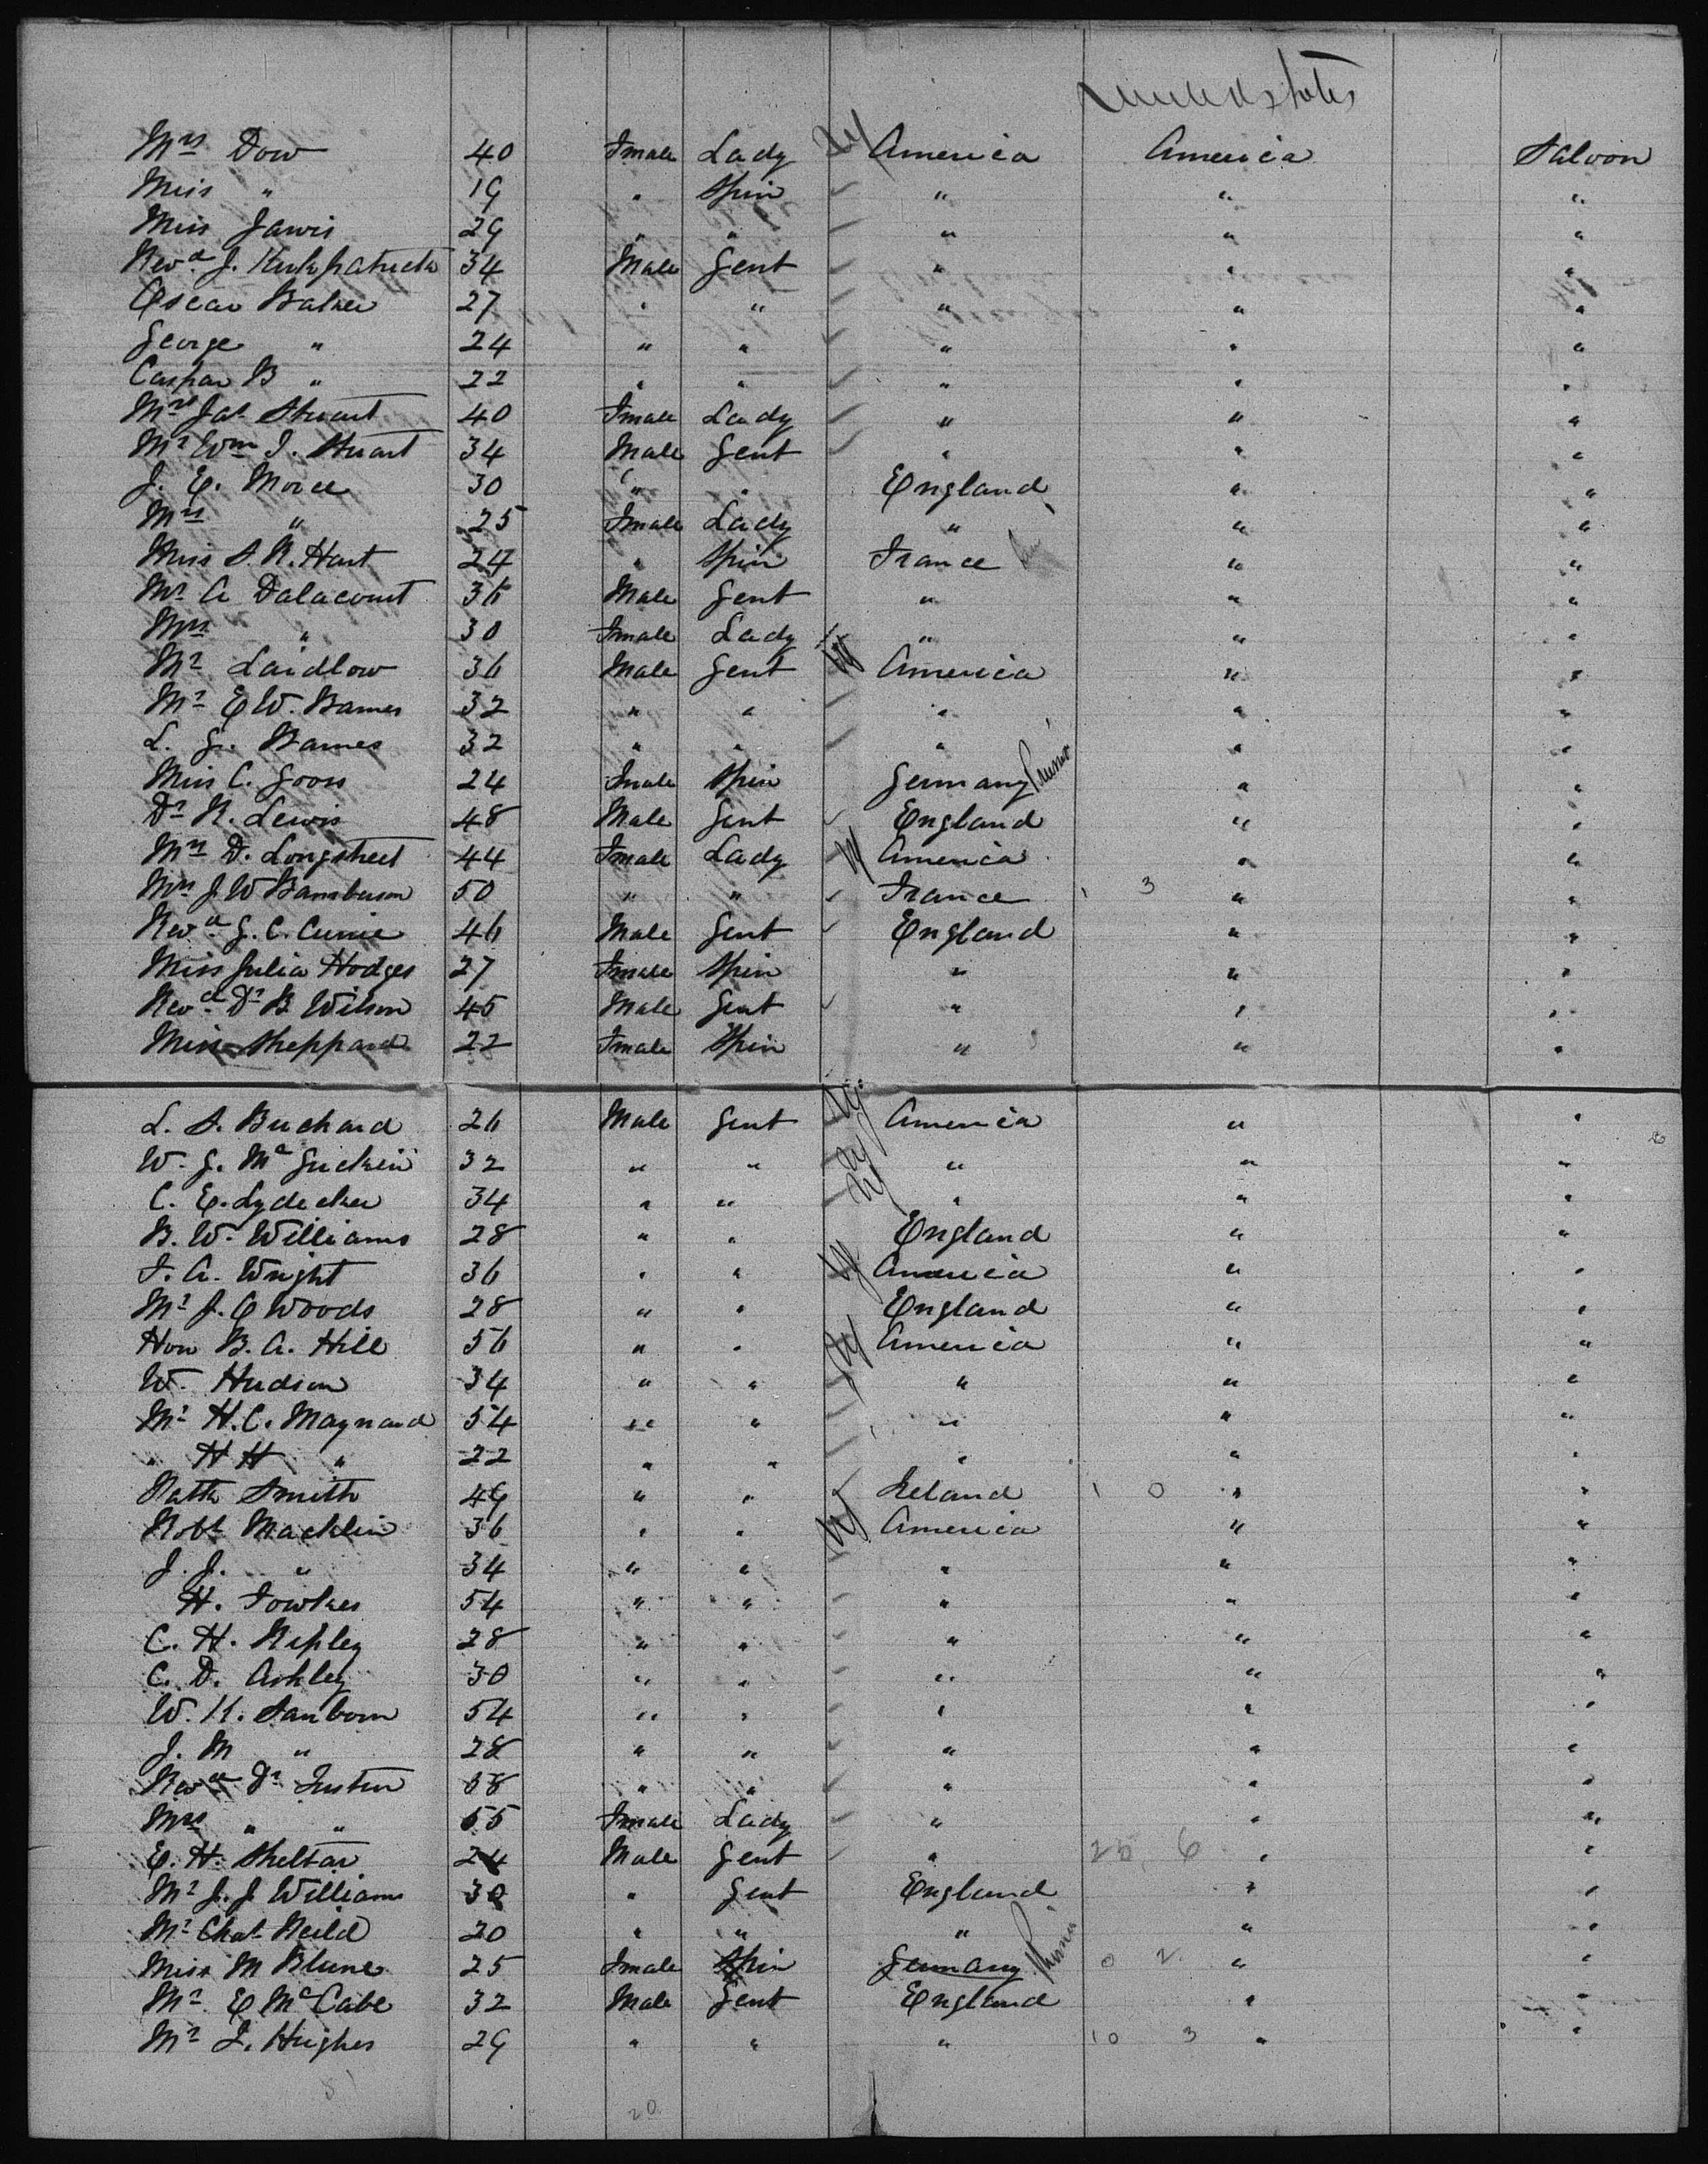 United states
Mrs Dow 40 Fmale Lady America America Saloon
Miss " 19 " Spin " " "
Miss Jarvis 29 " " " " "
Revd J. Kirkpatrick 34 Male Gent " " "
Oscar Baker 27 " " " " "
George " 24 " " " " "
Caspar B " 22 " " " " "
Mrs Jas Stuart 40 Fmale Lady " " "
Mr Wm J. Stuart 34 Male Gent " " "
J. E. Morce 30 " " England " "
Mrs " 25 Fmale Lady " " "
Miss S. R. Hart 24 " Spin France " "
Mr A Dalacourt 36 Male Gent " " "
Mrs " 30 Fmale Lady " " "
Mr Laidlow 36 Male Gent America " "
Mr E W. Barnes 32 " " " " "
L. G. Barnes 32 " " " " "
Miss C. Goos 24 Fmale Spin Germany " "
Dr R. Lewis 48 Male Gent England " "
Mrs D. Longstreet 44 Fmale Lady America " "
Mrs J W 50 " " France 1 3 " "
Revd G. C. Currie 46 Male Gent England " "
Miss Julia Hodges 27 Fmale Spin " " "
Revd Dr B Wilson 45 Male Gent " " "
Miss Sheppard 22 Fmale Spin " " "
L. S. Buchard 26 Male Gent America " "
W. G. Mc Guckin 32 " " " " "
C. E. Lydecker 34 " " " " "
B. W. Williams 28 " " England " "
F. A. Wright 36 " " America " "
Mr J. C Woods 28 " " England " "
Hon B. A. Hill 56 " " America " "
W. Hudson 34 " " " " "
Mr H. C. Maynard 54 " " " " "
" H H " 22 " " " " "
Patk Smith 49 " " Ireland 1 0 " "
Robt Macklin 36 " " America " "
J. J. " 34 " " " " "
H. Fowkes 54 " " " " "
C. H. Ripley 28 " " " " "
C. D. Ashley 30 " " " " "
W. K. Sanborn 54 " " " " "
J. M " 28 " " " " "
Revd Dr Justin 58 " " " " "
Mrs " " 55 Fmale Lady " " "
E. H. Sheltar 24 Male Gent " 25 6 " "
Mr J. J Williams 30 " Gent England " "
Mr Chas Neild 20 " " " " "
Miss M Blune 25 Fmale Spin Germany 0 2 " "
Mr E McCabe 32 Male Gent England " "
Mr L. Hughes 29 " " " 10 3 " "
20